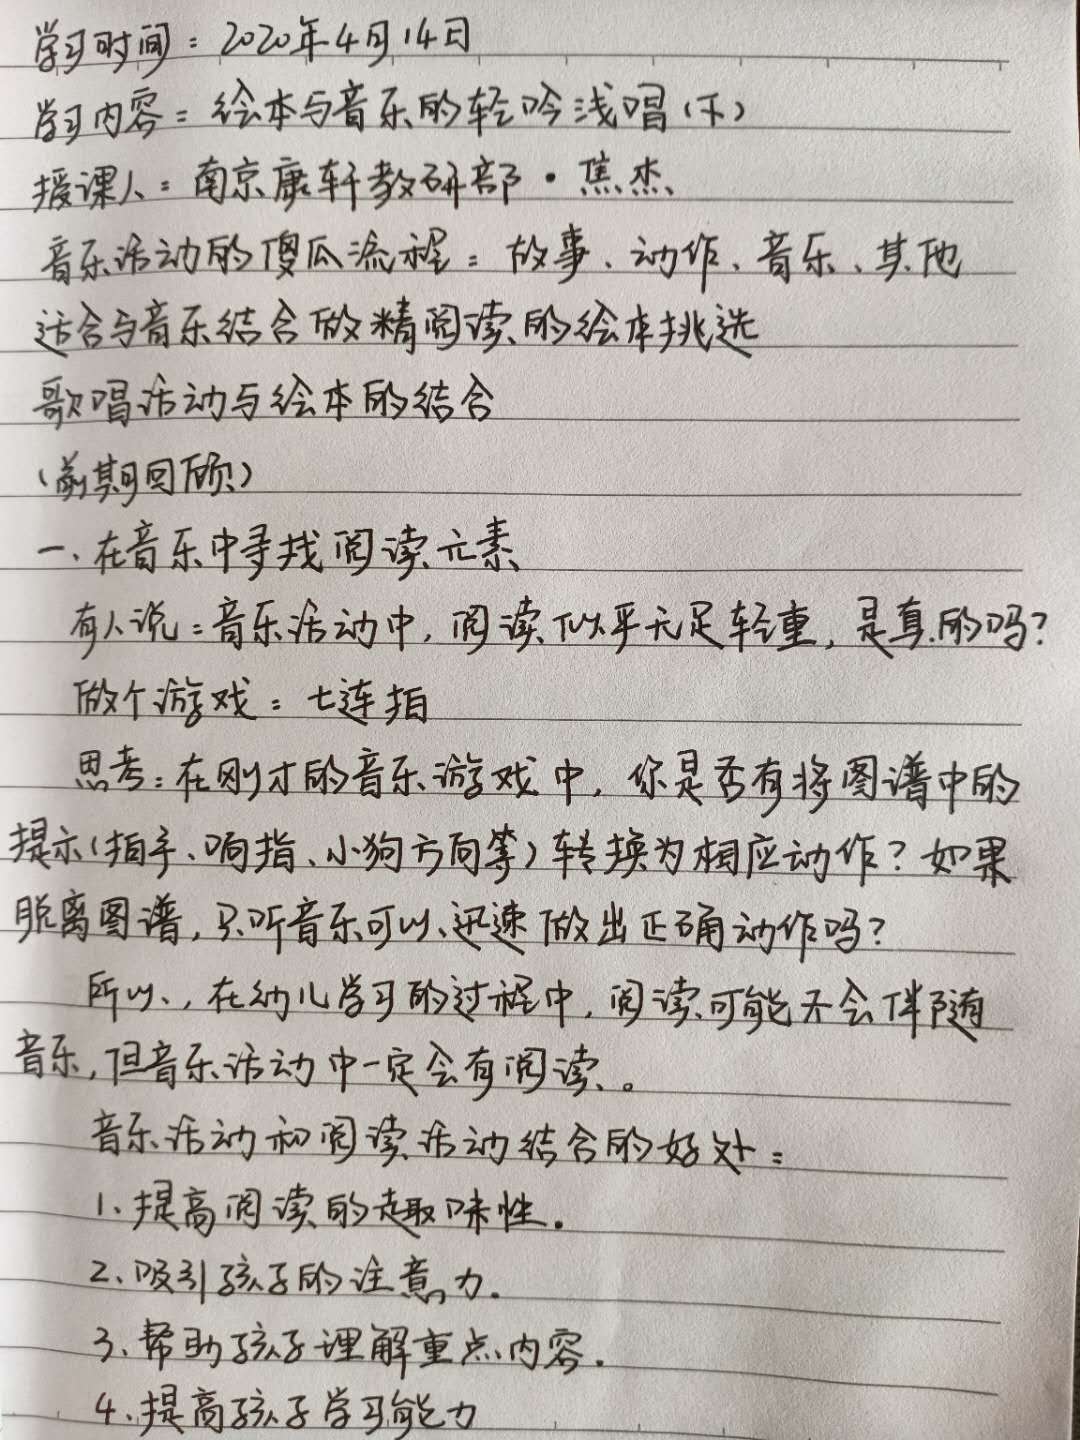 学习时间：2020年4月14日
学习内容：绘本与音乐的轻吟浅唱（下）
授课人：南京康轩教研部·焦杰
音乐活动的傻瓜流程：故事、动作、音乐、其他
适合与音乐结合做精阅读的绘本挑选
歌唱活动与绘本的结合
（前期回顾）
一、在音乐中寻找阅读元素
有人说：音乐活动中，阅读似乎无足轻重，是真的吗？
做个游戏：七连拍
思考：在刚才的音乐游戏中，你是否有将图谱中的
提示（拍手、响指、小狗方向等）转换为相应动作？如果
脱离图谱，只听音乐可以迅速做出正确动作吗？
所以，在幼儿学习的过程中，阅读可能不会伴随
音乐，但音乐活动中一定会有阅读。
音乐活动和阅读活动结合的好处：
1、提高阅读的趣味性．
2、吸引孩子的注意力．
3、帮助孩子理解重点内容．
4、提高孩子学习能力